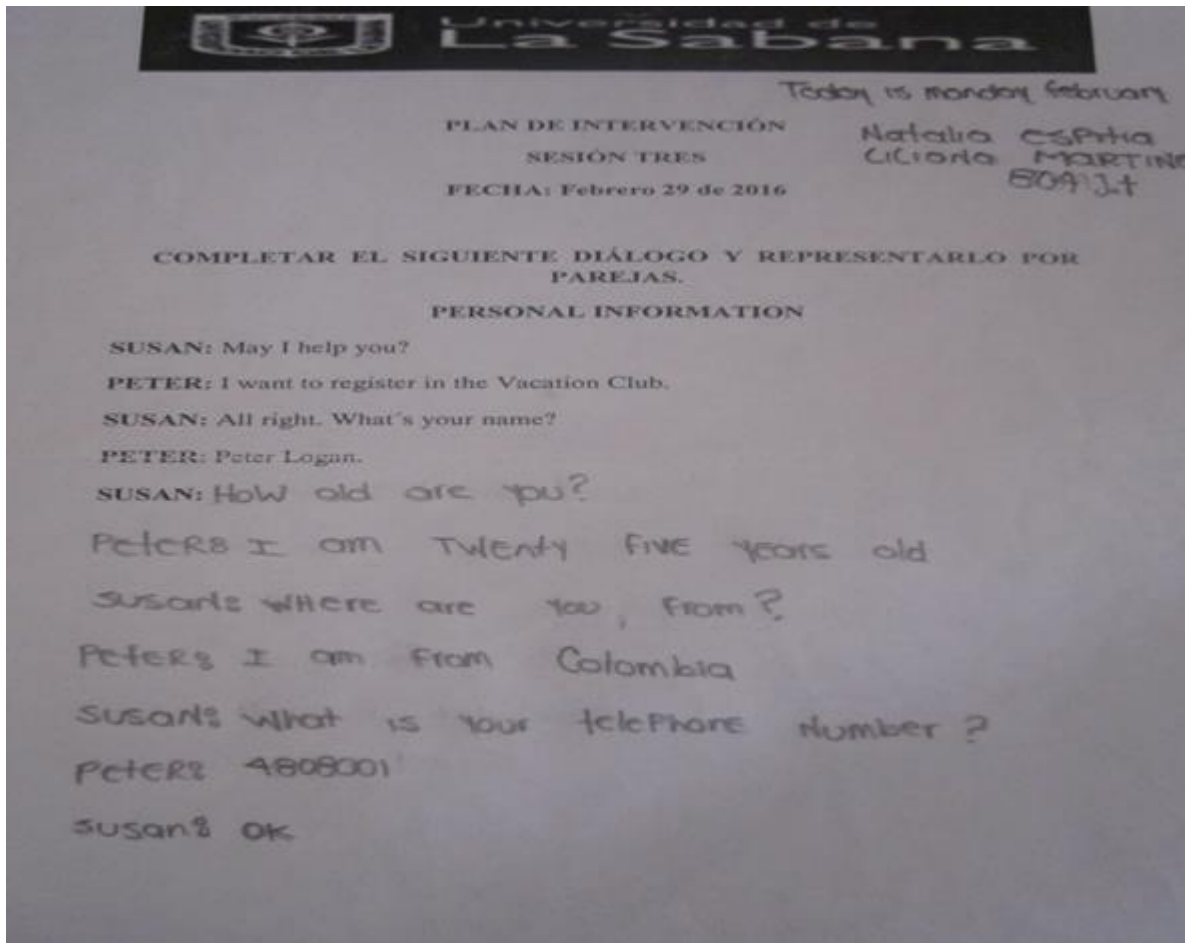 Universidad de
La Sabana
Today is monday february
PLAN DE INTERVENCIÓN
Natalia Espitia
SESIÓN TRES
Liliana MARTINE
FECHA: Febrero 29 de 2016
COMPLETAR EL SIGUIENTE DIÁLOGO Y REPRESENTARLO POR
PAREJAS.
PERSONAL INFORMATION
SUSAN: May I help you?
PETER: I want to register in the Vacation Club.
SUSAN: All right. What´s your name?
PETER: Peter Logan.
SUSAN: How old are you?
PeteR: I am TWENty FIVE years old
susan: WHere are You, From?
PeteR: I am From Colombia
susan: What is Your telePhone Number?
PeteR: 4808001
susan: OK